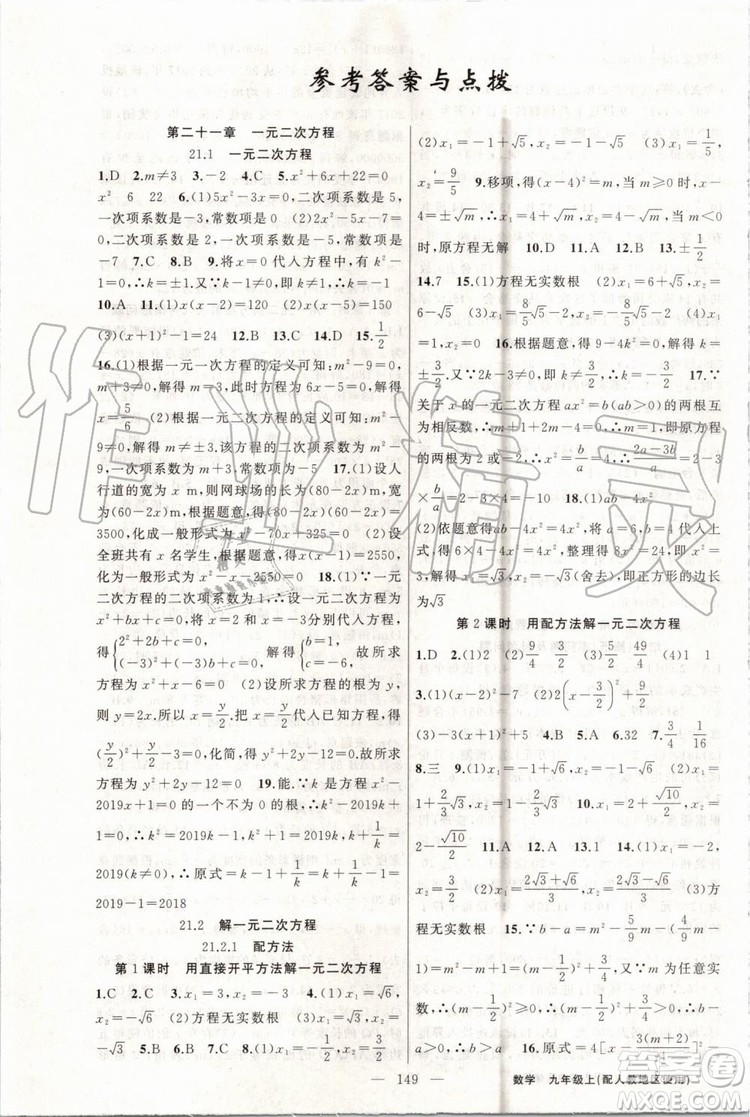 参考答案与点拨
第二十一章 一元二次方程
21.1 一元二次方程
1.D 2.m≠3 3.-2 4.C 5.x²+6x+22=0
x² 6 22 6.(1)5x²-3x=0,二次项系数是5,
一次项系数是-3,常数项是0 (2)2x²-5x-7=
0,二次项系数是2,一次项系数是-5,常数项是
-7 7.C 8.B 9.将x=0代入方程中,有k²-
1=0,∴k=±1.又∵k-1≠0,即k≠1,∴k=-1
10.A 11.(1)x(x-2)=120 (2)x(x+5)=150
(3)(x+1)²-1=24 12.B 13.C 14.D 15.1/2
16.(1)根据一元二次方程的定义可知:m²-9=0,
m+3≠0,解得m=3,此时方程为6x-5=0,解得
x=5/6 (2)根据一元二次方程的定义可知:m²-
9≠0,解得m≠±3,该方程的二次项系数为m²-
9,一次项系数为m+3,常数项为-5 17.(1)设人
行道的宽为x m,则网球场的长为(80-2x)m,
宽为(60-2x)m,根据题意,得(80-2x)(60-2x)=
3500,化成一般形式为x²-70x+325=0 (2)设
全班共有x名学生,根据题意,得x(x-1)=2550,
化为一般形式为x²-x-2550=0 18.(1)∵一元
二次方程的二次项系数为1,∴设所求方程为
x²+bx+c=0,将x=2和x=-3分别代入方程,
得{2²+2b+c=0, (-3)²-3b+c=0, 解得{b=1, c=-6, ∴所求
方程为x²+x-6=0 (2)设所求方程的根为y,
则y=2x.所以x=y/2,把x=y/2代入已知方程,得
(y/2)²+y/2-3=0,化简,得y²+2y-12=0.故所求
方程为y²+2y-12=0 19.能.∵k是方程x²-
2019x+1=0的一个不为0的根,∴k²-2019k+
1=0,∴k²=2019k-1,k²+1=2019k,∴k+1/k
=2019,∴原式=k²-(k²+1)+k+1/k=-1+
2019-1=2018
21.2 解一元二次方程
21.2.1 配方法
第1课时 用直接开平方法解一元二次方程
1.C 2.C 3.x₁=3,x₂=-3 4.(1)x₁=√6,
x₂=-√6 (2)方程无实数根 (3)x₁=√3,x₂=
-√3 5.A 6.C 7.B 8.(1)x₁=1,x₂=-5
(2)x₁=-1+√5,x₂=-1-√5 (3)x₁=1/5,
x₂=9/5 9.移项,得(x-4)²=m,当m≥0时,x-
4=±√m,∴x₁=4+√m,x₂=4-√m;当m<0
时,原方程无解 10.D 11.A 12.B 13.±1/2
14.7 15.(1)方程无实数根 (2)x₁=6+√5,x₂
=6-√5 (3)x₁=-8/5√5,x₂=8/5√5 (4)x₁=
0,x₂=-1 16.根据题意,得9-4k²=8,解得k=
±1/2.又∵k<0,∴k=-1/2 17.(1)m=-2 (2)∵
关于x的一元二次方程ax²=b(ab>0)的两根互
为相反数,∴m+1+2m-4=0,∴m=1,即原方程
的两根为2或-2,∴x²=b/a=4,∴原式=(2a-3b)/a
×b/a=2×b/a-3×b/a×b/a=2×4-3×4×4=-40 18.
(2)依题意得ab-4x²=4x²,将a=6,b=4代入上
式,得6×4-4x²=4x²,整理得8x²=24,解得
x₁=√3,x₂=-√3(舍去),即正方形的边长
为√3
第2课时 用配方法解一元二次方程
1.D 2.(1)25 5 (2)9/4 3/2 (3)5/2 49/4 (4)1 1
3.(1)(x-2)²-1 (2)2(x-3/2)²+1/2
(3)-3(x+1)²+5 4.B 5.A 6.32 7.3/4 1/16
8.三 9.(1)x₁=-1+√6,x₂=-1-√6 (2)x₁=
1+2/3√3,x₂=1-2/3√3 10.(1)x₁=2+√10/2,x₂=
2-√10/2 (2)x₁=-1,x₂=-2 11.A 12.A 13.D
14.(1)x₁=3,x₂=1 (2)x₁=(2√3+√6)/3,x₂=(2√3-√6)/3 (3)方
程无实数根 15.∵a-b=m²-m+1/4=(m-1/2)²≥0,又∵m为任意实
数,∴(m-1/2)²≥0,∴a-b≥0,∴a≥b
∴m的取值范围 16.(1)原式=4[x-3(m+2)/8]²
— 149 — 数学 九年级上(配人教地区使用)
作业精灵